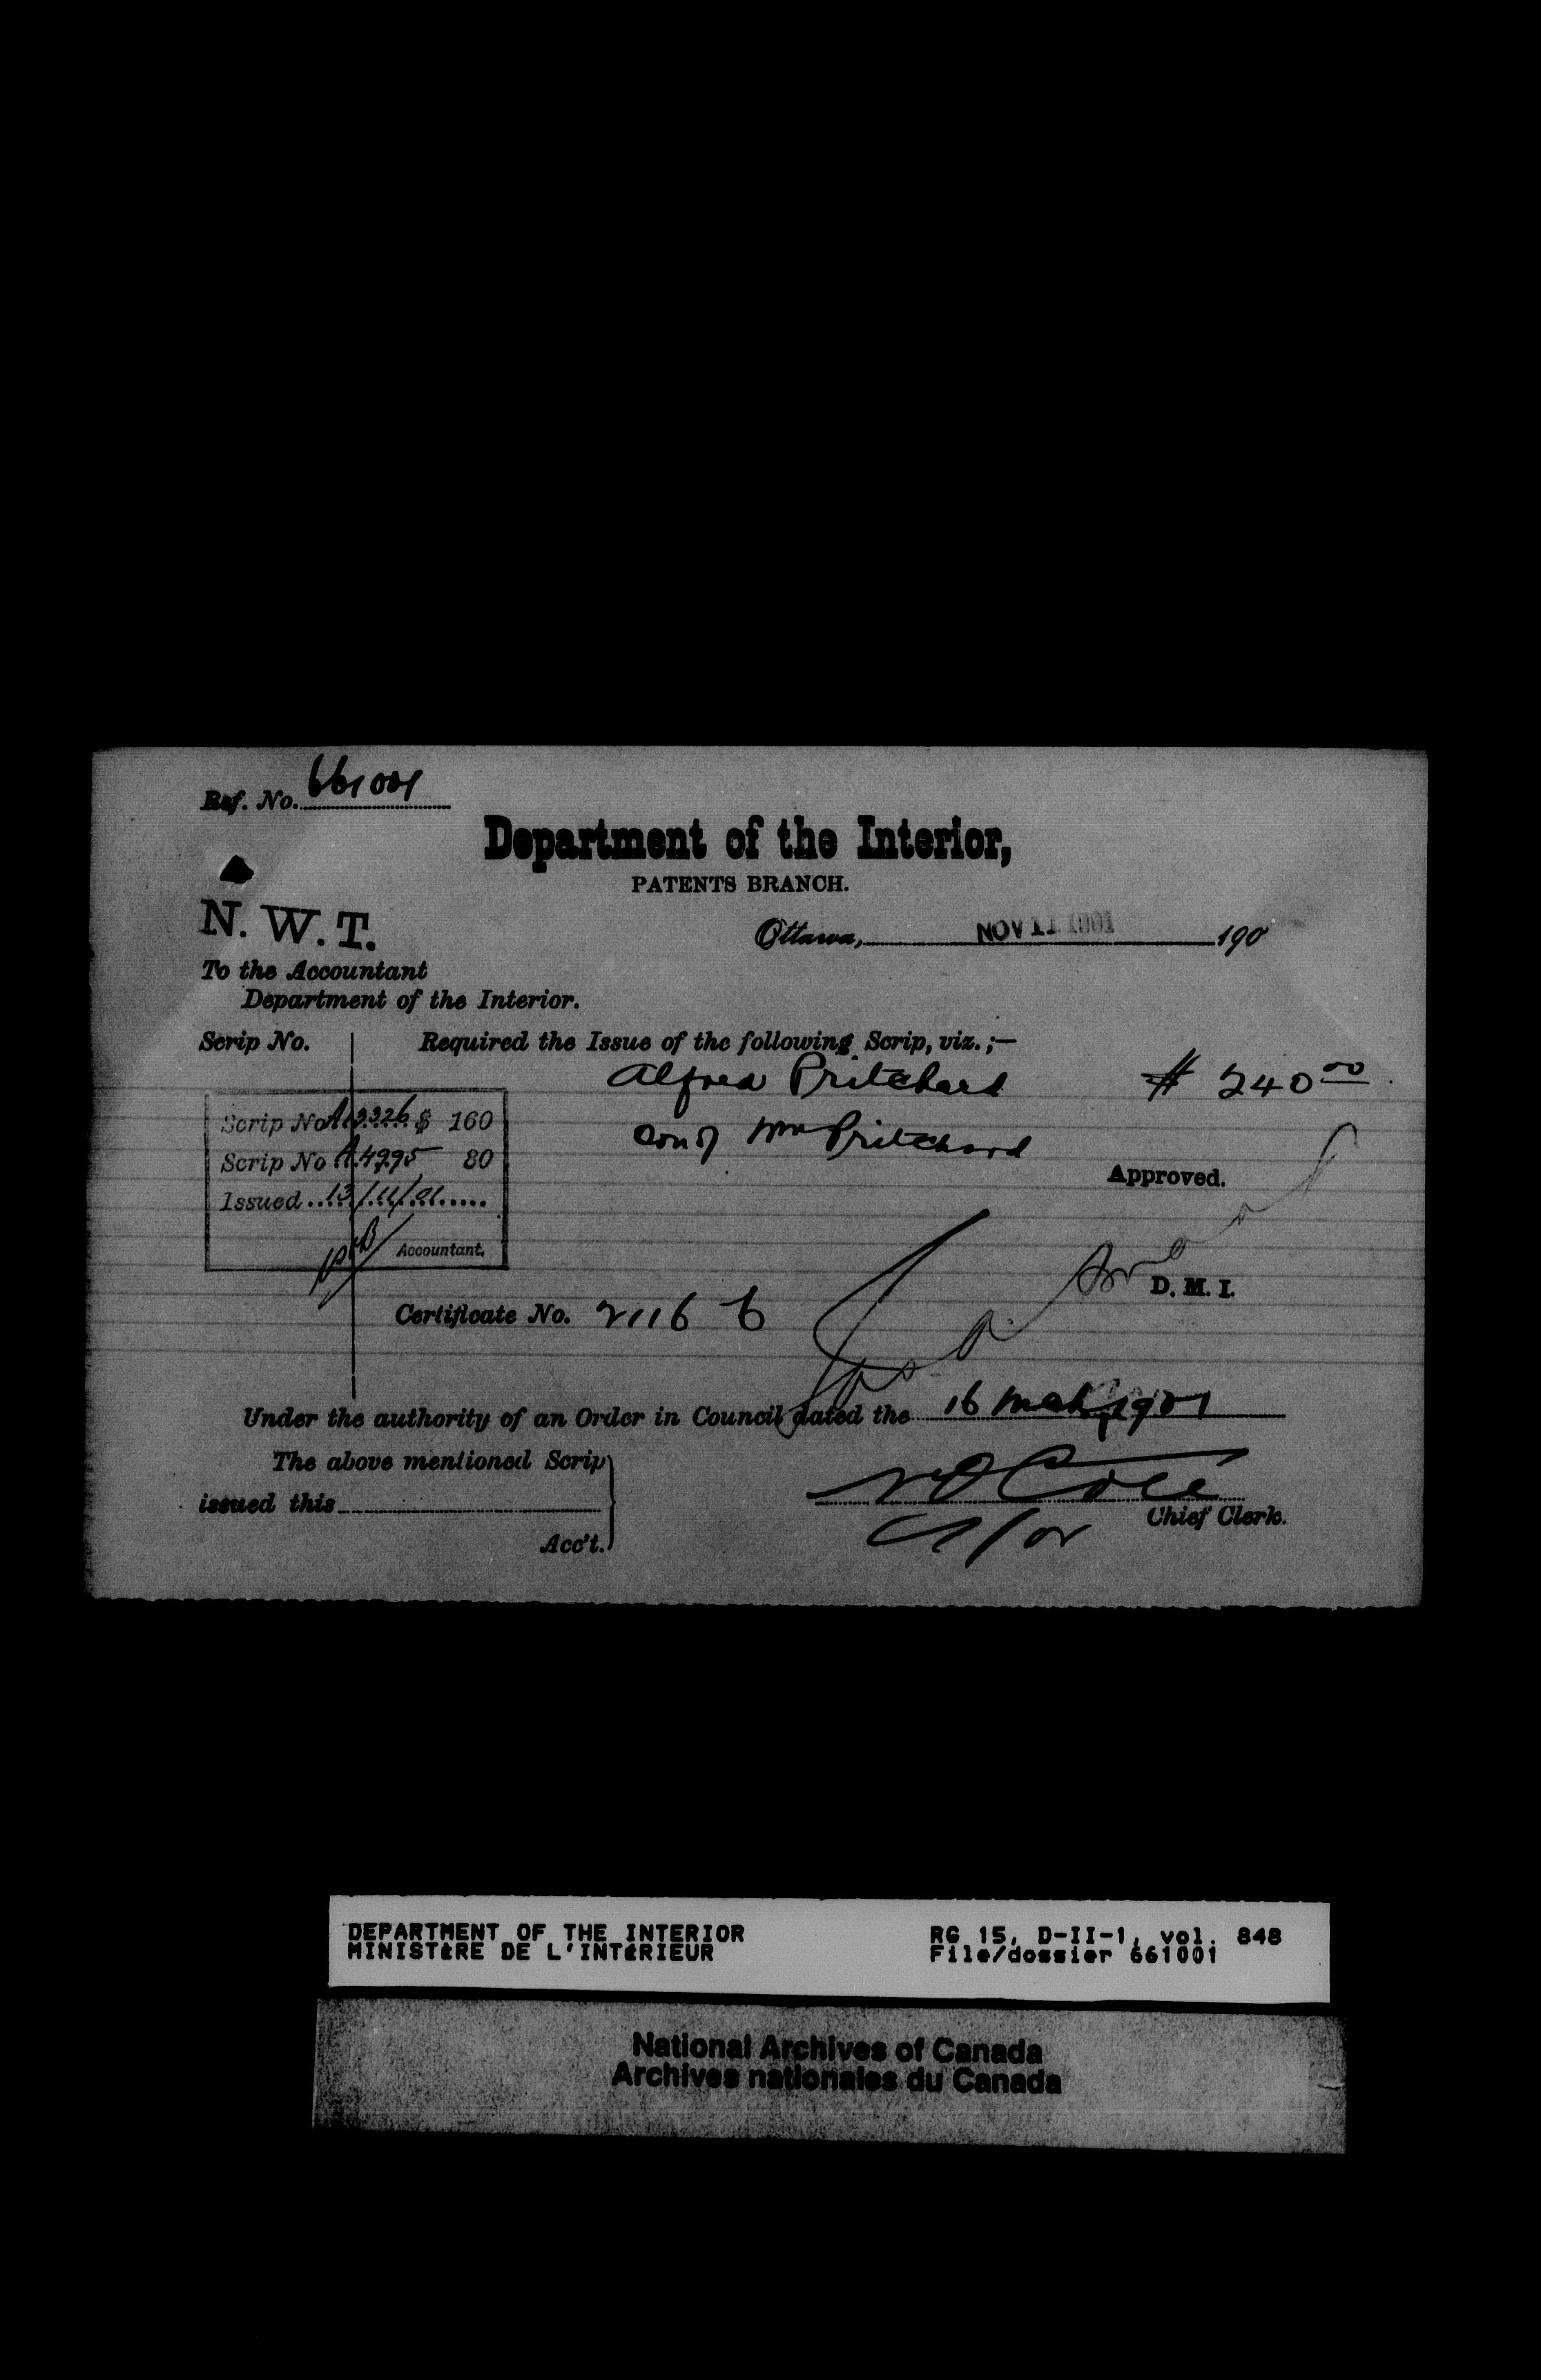 Ref. No. 661001
Department of the Interior,
PATENTS BRANCH.
N. W. T.
Ottawa, NOV 11 1901 190
To the Accountant
Department of the Interior.
Scrip No.
Required the Issue of the following Scrip, viz. ;—
Alfred Pritchard # 240 00
Son of Wm Pritchard
Scrip No $ 160
Scrip No A.4995 80
Issued 13/11/01
Accountant.
Approved.
D. M. I.
Certificate No. 2116
Under the authority of an Order in Council dated the 16 Mch, 1901
The above mentioned Scrip
issued this
Acc't.
Chief Clerk.
DEPARTMENT OF THE INTERIOR RG 15, D-II-1, vol. 848
MINISTÈRE DE L'INTÉRIEUR File/dossier 661001
National Archives of Canada
Archives nationales du Canada